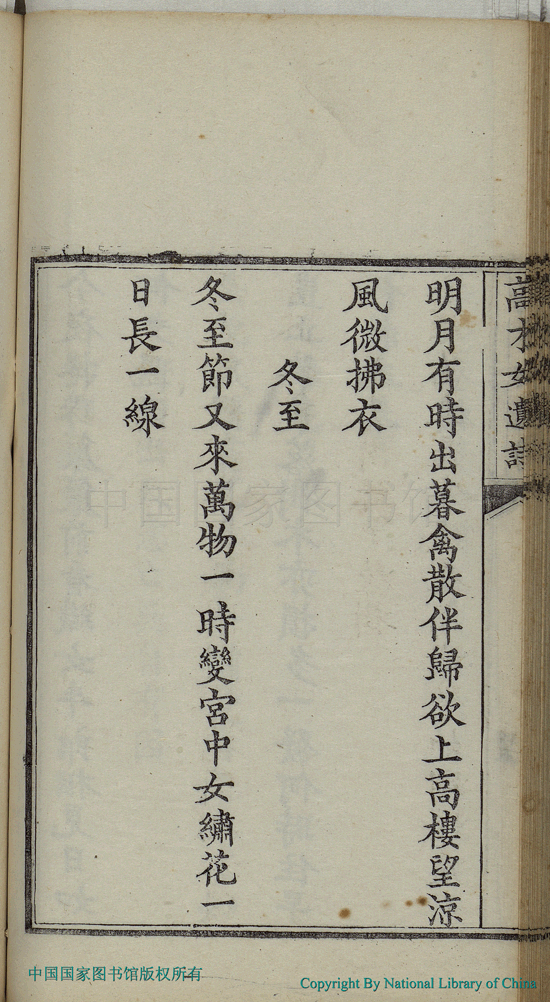 高才女遺詩
明月有時出暮禽散伴歸欲上高樓望涼
風微拂衣
冬至
冬至節又來萬物一時變宮中女繡花一
日長一線
中国国家图书馆
中国国家图书馆版权所有
Copyright By National Library of China